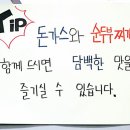 TiP
돈가스와 순두부찌개
함께 드시면 담백한 맛을
즐기실 수 있습니다.